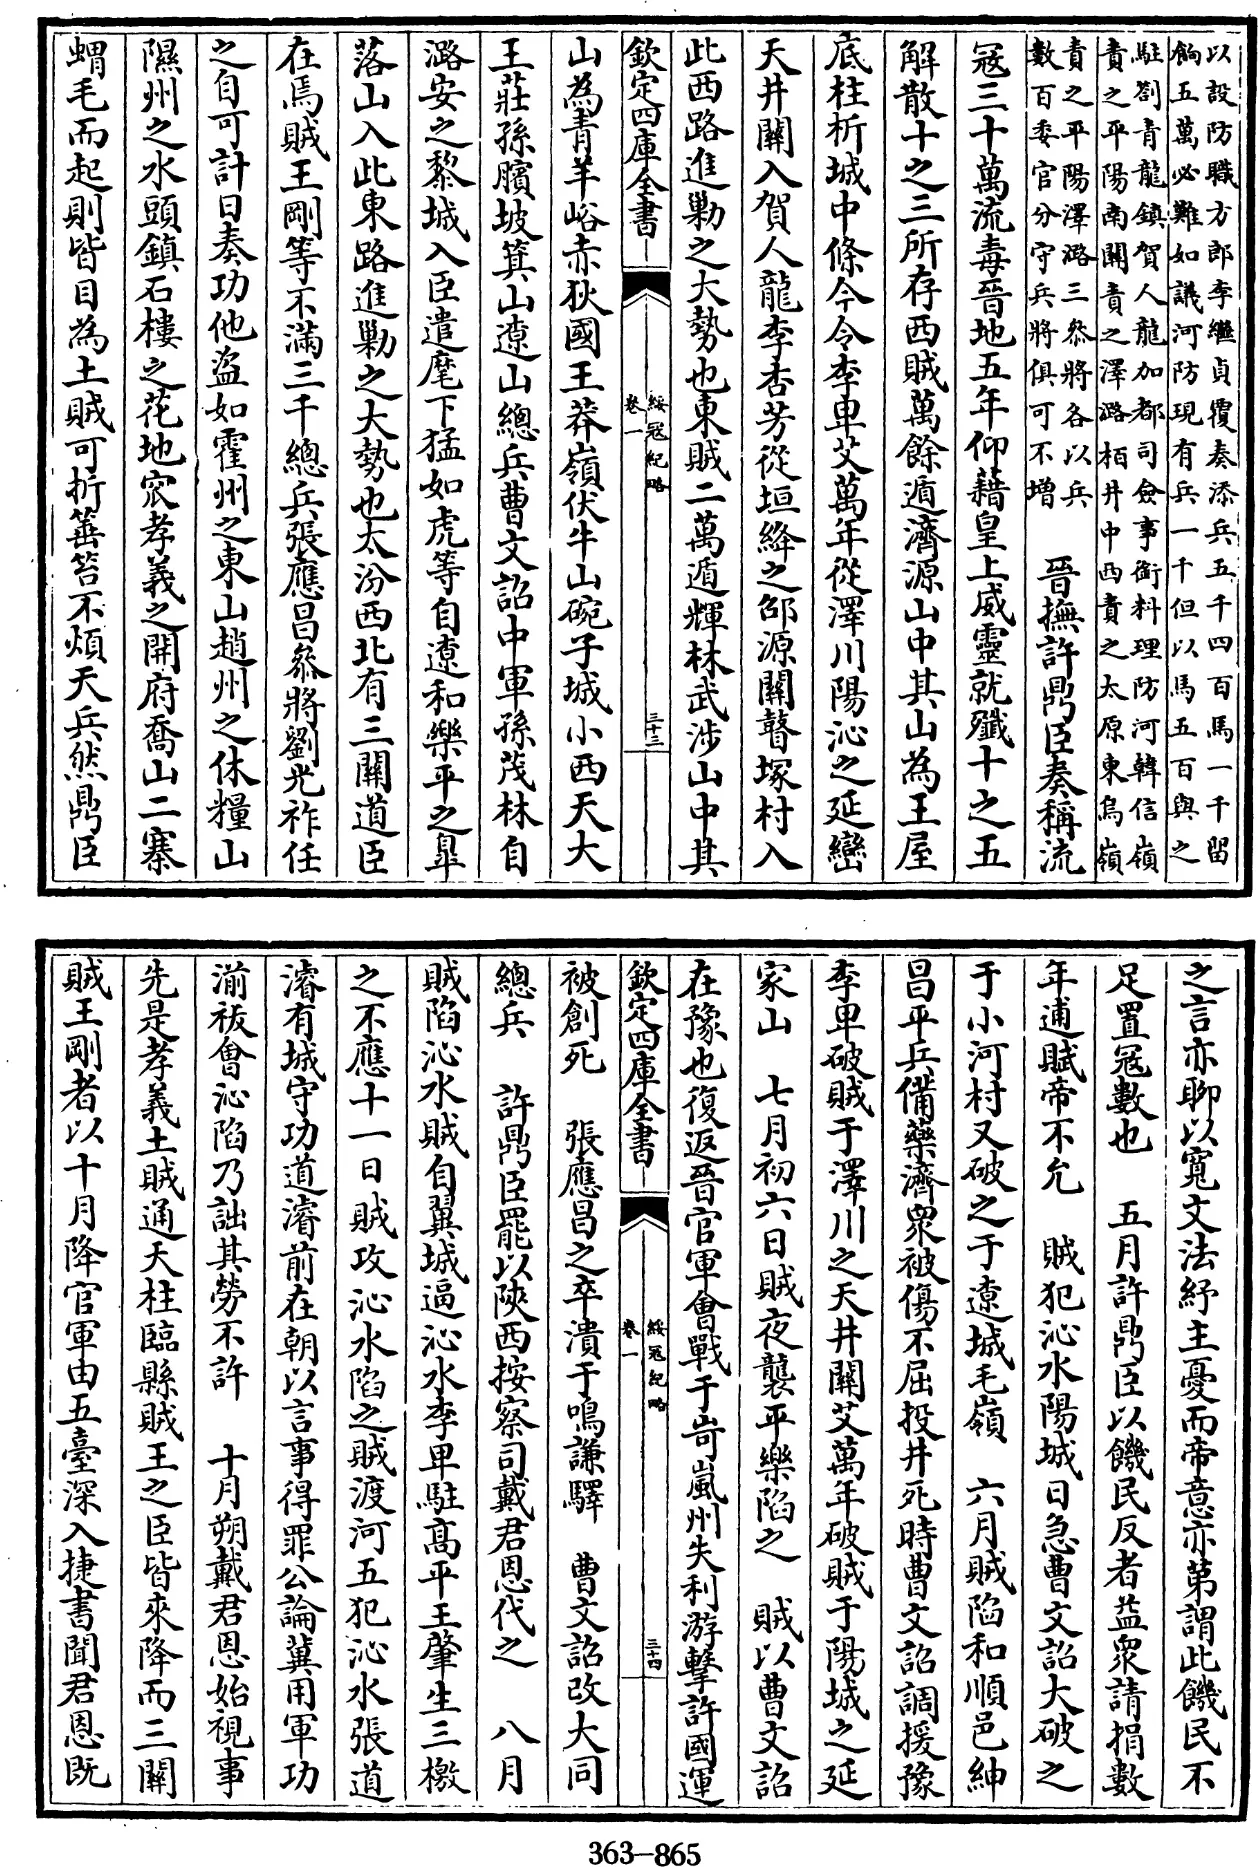 以設防職方郎李繼貞覆奏添兵五千四百馬一千留
餉五萬必難如議河防現有兵一千但以馬五百與之
駐劄青龍鎮賀人龍加都司僉事銜料理防河韓信嶺
責之平陽南關責之澤潞栢井中西責之太原東烏嶺
責之平陽澤潞三叅將各以兵
數百委官分守兵將俱可不增
晉撫許鼎臣奏稱流
寇三十萬流毒晉地五年仰藉皇上威靈就殲十之五
解散十之三所存西賊萬餘遁濟源山中其山為王屋
底柱析城中條今令李卑艾萬年從澤川陽沁之延巒
天井關入賀人龍李杏芳從垣絳之邵源關瞽塚村入
此西路進勦之大勢也東賊二萬遁輝林武涉山中其
欽定四庫全書
綏寇紀略
卷一
三十三
山為青羊峪赤狄國王莽嶺伏牛山碗子城小西天大
王莊孫臏坡箕山遼山總兵曹文詔中軍孫茂林自
潞安之黎城入臣遣麾下猛如虎等自遼和樂平之臯
落山入此東路進勦之大勢也太汾西北有三關道臣
在焉賊王剛等不滿三千總兵張應昌叅將劉光祚任
之自可計日奏功他盜如霍州之東山趙州之休糧山
隰州之水頭鎮石樓之花地窊孝義之開府喬山二寨
蝟毛而起則皆目為土賊可折箠笞不煩天兵然鼎臣
之言亦聊以寬文法紓主憂而帝意亦第謂此饑民不
足置冦數也　五月許鼎臣以饑民反者益衆請捐數
年逋賦帝不允　賊犯沁水陽城日急曹文詔大破之
于小河村又破之于遼城毛嶺　六月賊陷和順邑紳
昌平兵備藥濟衆被傷不屈投井死時曹文詔調援豫
李卑破賊于澤川之天井關艾萬年破賊于陽城之延
家山　七月初六日賊夜襲平樂陷之　賊以曹文詔
在豫也復返晉官軍會戰于岢嵐州失利游擊許國運
欽定四庫全書
綏寇紀略
卷一
三十四
被創死　張應昌之卒潰于鳴謙驛　曹文詔改大同
總兵　許鼎臣罷以陝西按察司戴君恩代之　八月
賊陷沁水賊自翼城逼沁水李卑駐高平王肇生三檄
之不應十一日賊攻沁水陷之賊渡河五犯沁水張道
濬有城守功道濬前在朝以言事得罪公論冀用軍功
湔祓會沁陷乃詘其勞不許　十月朔戴君恩始視事
先是孝義土賊通天柱臨縣賊王之臣皆來降而三關
賊王剛者以十月降官軍由五臺深入捷書聞君恩既
363—865